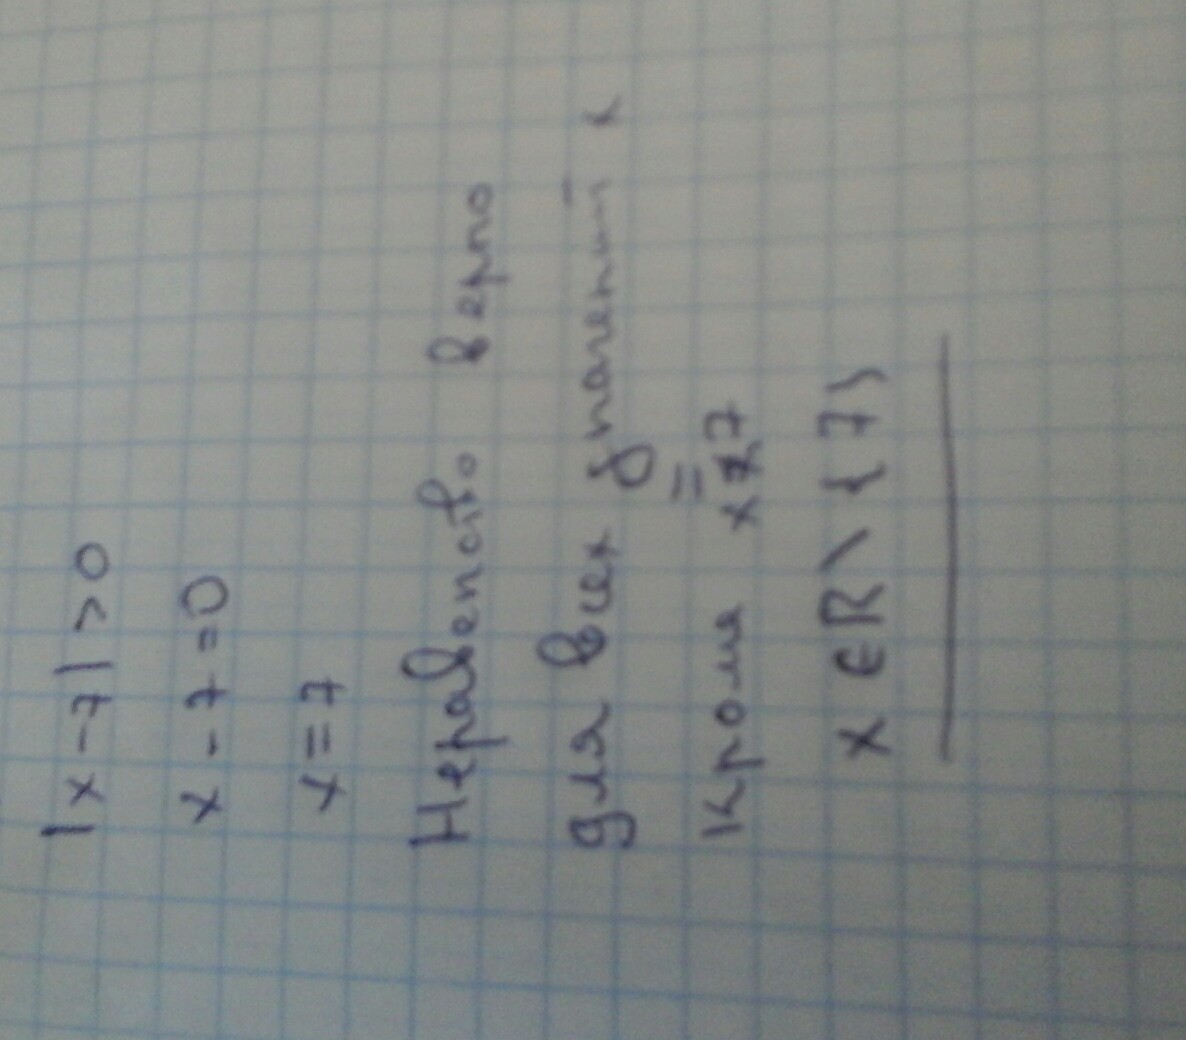 |x-7|>0
x-7=0
x=7
Неравенство верно
для всех значений x
кроме x=7
x∈R\{7}